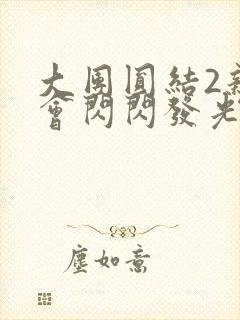 大團圓結2新
會閃閃發光
塵如意